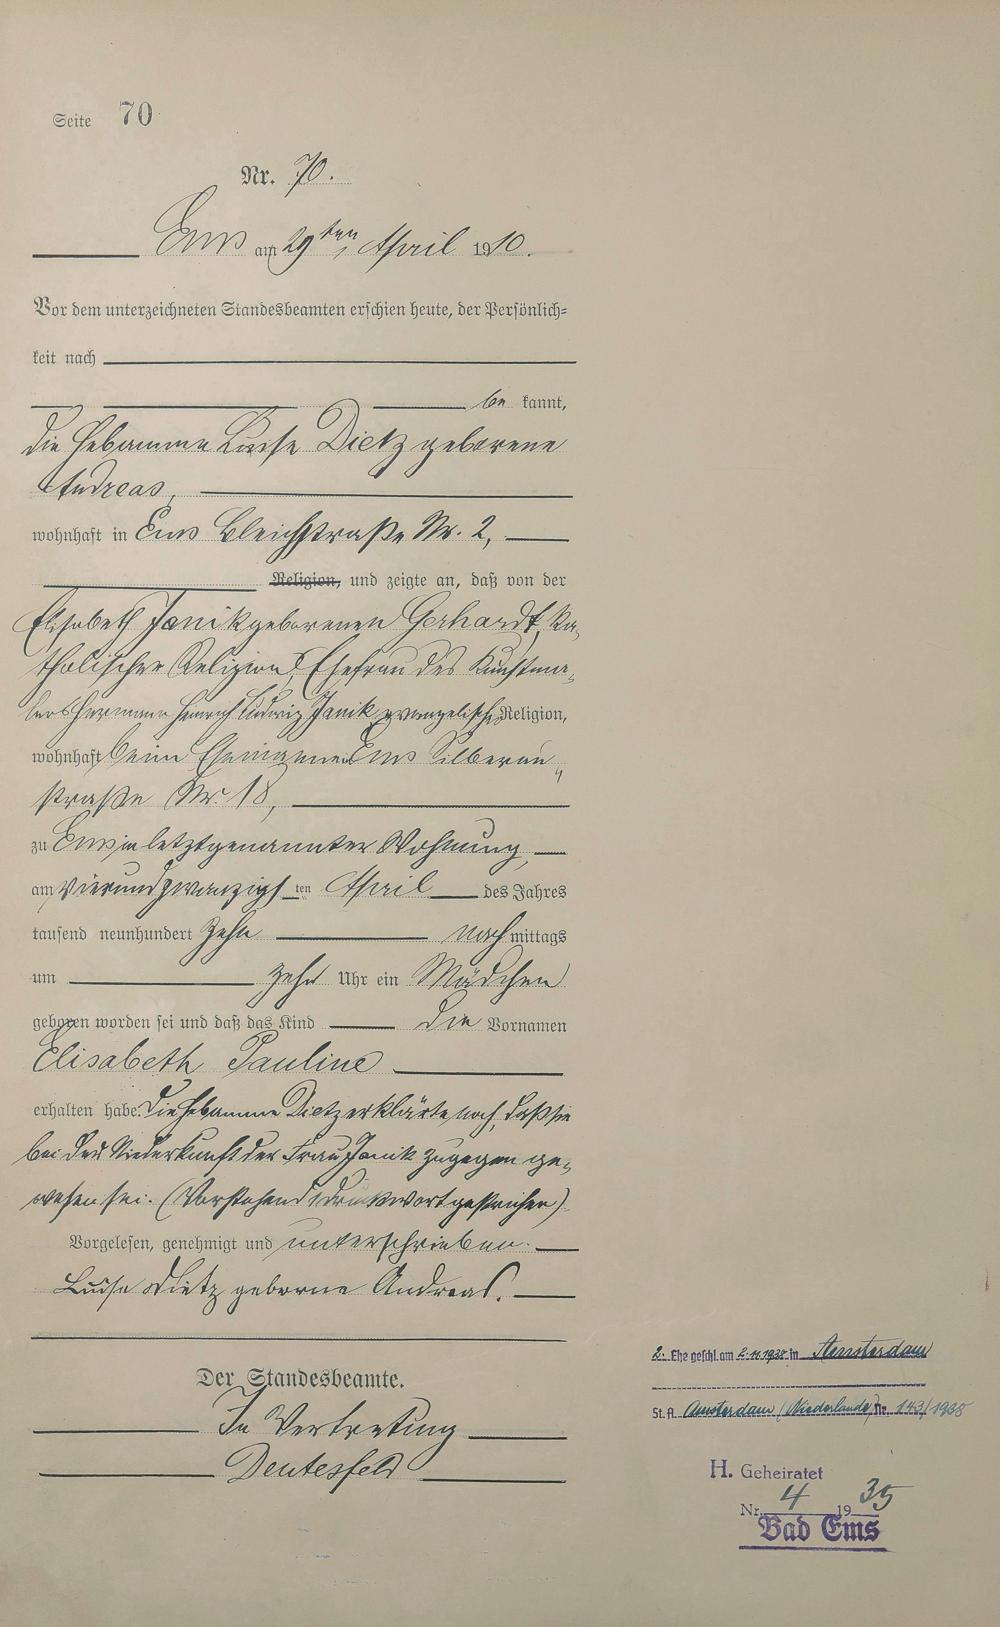 Seite 70
Nr. 70.
Ems am 29ten April 1910.
Vor dem unterzeichneten Standesbeamten erschien heute, der Persönlich=
keit nach
be kannt,
die Hebamme Luise Dietz geborene
Andreas,
wohnhaft in Ems Bleichstraße Nr. 2,
Religion, und zeigte an, daß von der
Elisabeth Janik geborenen Gerhardt, ka-
tholischer Religion, Ehefrau des Kunstma-
lers Hermann Heinrich Ludwig Janik, evangelischer Religion,
wohnhaft beim Ehemanne Ems Silberau
straße Nr. 18,
zu Ems in letztgenannter Wohnung,
am vierundzwanzigsten April des Jahres
tausend neunhundert zehn nach mittags
um zehn Uhr ein Mädchen
geboren worden sei und daß das Kind die Vornamen
Elisabeth Pauline
erhalten habe. Die Hebamme Dietz erklärte noch, daß sie
bei der Niederkunft der Frau Janik zugegen ge-
wesen sei. (Vorstehend 1 Druckwort gestrichen)
Vorgelesen, genehmigt und unterschrieben.
Luise Dietz geborne Andreas.
Der Standesbeamte.
In Vertretung
Deutesfeld
2. Ehe geschl. am 2.11.1938 in Amsterdam
St. A. Amsterdam (Niederlande) Nr. 143/1938
H. Geheiratet
Nr. 4 1935
Bad Ems